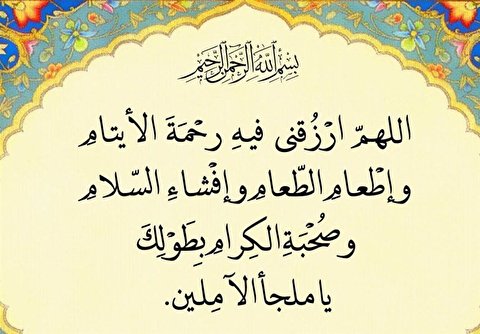 بسم الله الرحمن الرحيم
اللهمّ ارْزُقنى فيهِ رحْمَةَ الأيتامِ
وإطْعامِ الطّعامِ وإفْشاءِ السّلامِ
وصُحْبَةِ الكِرامِ بِطَوْلِكَ
يا ملجأ الآمِلين.